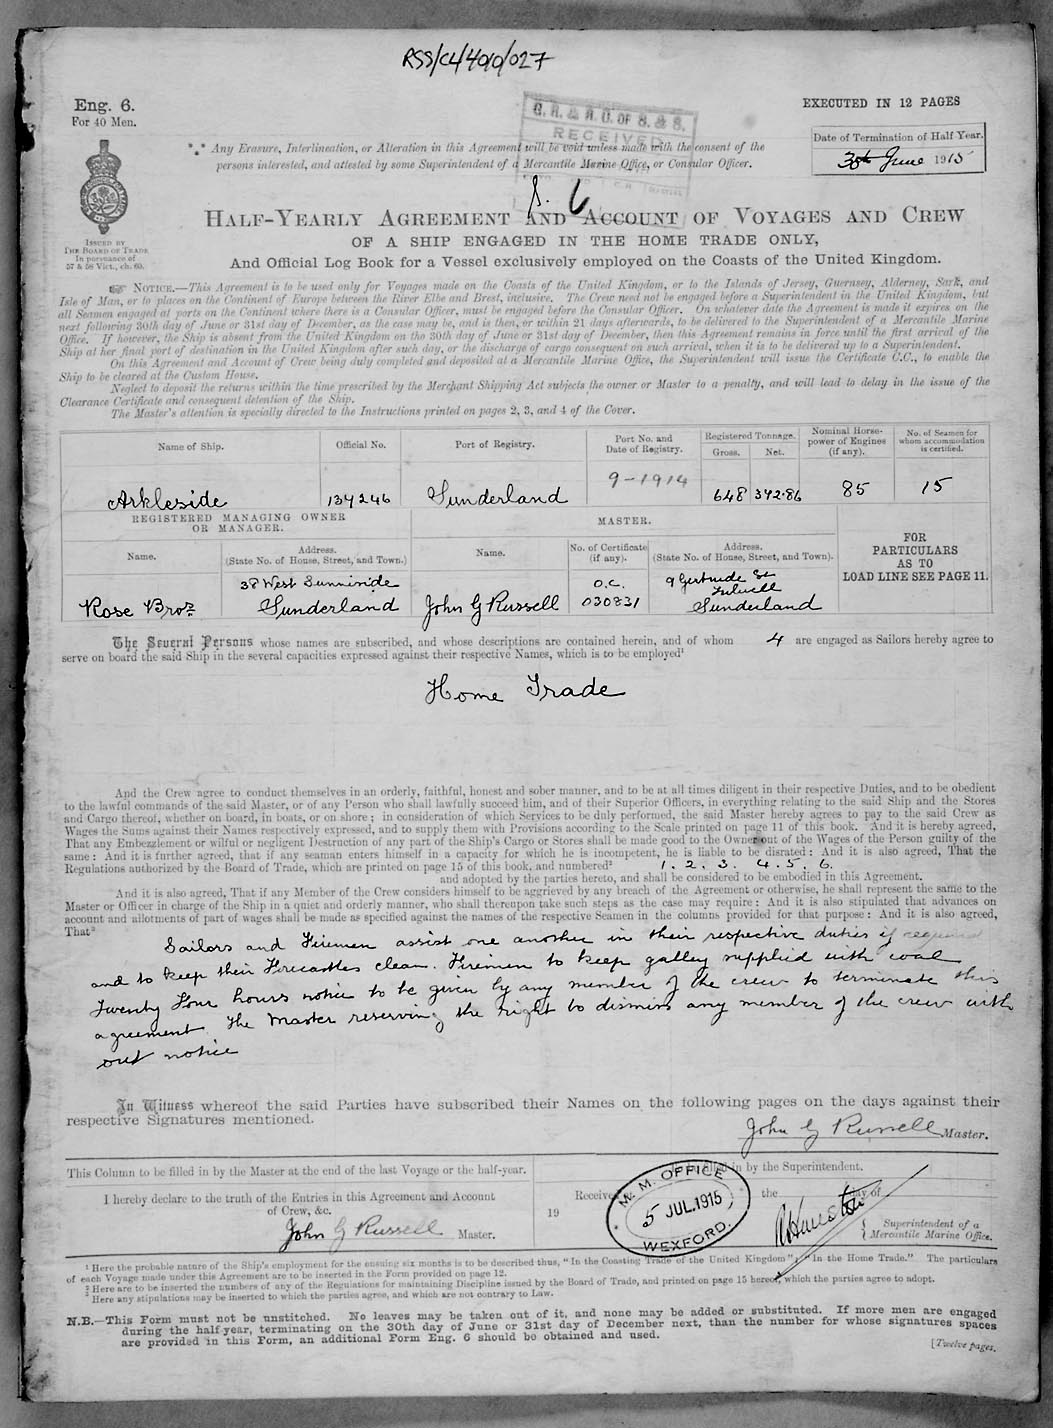 RSS/CL/4010/027
Eng. 6.
For 40 Men.
EXECUTED IN 12 PAGES
G. R. & R. O. OF S. & S.
RECEIVED
Date of Termination of Half Year.
30th June 1915
⁂ Any Erasure, Interlineation, or Alteration in this Agreement will be void unless made with the consent of the
persons interested, and attested by some Superintendent of a Mercantile Marine Office, or Consular Officer.
S. 6
ISSUED BY
THE BOARD OF TRADE
In pursuance of
57 & 58 Vict., ch. 60.
HALF-YEARLY AGREEMENT AND ACCOUNT OF VOYAGES AND CREW
OF A SHIP ENGAGED IN THE HOME TRADE ONLY,
And Official Log Book for a Vessel exclusively employed on the Coasts of the United Kingdom.
☞ NOTICE.—This Agreement is to be used only for Voyages made on the Coasts of the United Kingdom, or to the Islands of Jersey, Guernsey, Alderney, Sark, and
Isle of Man, or to places on the Continent of Europe between the River Elbe and Brest, inclusive. The Crew need not be engaged before a Superintendent in the United Kingdom, but
all Seamen engaged at ports on the Continent where there is a Consular Officer, must be engaged before the Consular Officer. On whatever date the Agreement is made it expires on the
next following 30th day of June or 31st day of December, as the case may be, and is then, or within 21 days afterwards, to be delivered to the Superintendent of a Mercantile Marine
Office. If however, the Ship is absent from the United Kingdom on the 30th day of June or 31st day of December, then this Agreement remains in force until the first arrival of the
Ship at her final port of destination in the United Kingdom after such day, or the discharge of cargo consequent on such arrival, when it is to be delivered up to a Superintendent.
On this Agreement and Account of Crew being duly completed and deposited at a Mercantile Marine Office, the Superintendent will issue the Certificate C.C., to enable the
Ship to be cleared at the Custom House.
Neglect to deposit the returns within the time prescribed by the Merchant Shipping Act subjects the owner or Master to a penalty, and will lead to delay in the issue of the
Clearance Certificate and consequent detention of the Ship.
The Master's attention is specially directed to the Instructions printed on pages 2, 3, and 4 of the Cover.
Name of Ship. Official No. Port of Registry. Port No. and Date of Registry. Registered Tonnage. Gross. Net. Nominal Horse-power of Engines (if any). No. of Seamen for whom accommodation is certified.
Arkleside 137246 Sunderland 9-1914 648 342.86 85 15
REGISTERED MANAGING OWNER OR MANAGER. MASTER.
Name. Address. (State No. of House, Street, and Town.) Name. No. of Certificate (if any). Address. (State No. of House, Street, and Town).
FOR
PARTICULARS
AS TO
LOAD LINE SEE PAGE 11.
38 West Sunniside O.C. 9 Gertrude St
Fulwell
Rose Bros Sunderland John G Russell 030831 Sunderland
The Several Persons whose names are subscribed, and whose descriptions are contained herein, and of whom 4 are engaged as Sailors hereby agree to
serve on board the said Ship in the several capacities expressed against their respective Names, which is to be employed¹
Home Trade
And the Crew agree to conduct themselves in an orderly, faithful, honest and sober manner, and to be at all times diligent in their respective Duties, and to be obedient
to the lawful commands of the said Master, or of any Person who shall lawfully succeed him, and of their Superior Officers, in everything relating to the said Ship and the Stores
and Cargo thereof, whether on board, in boats, or on shore; in consideration of which Services to be duly performed, the said Master hereby agrees to pay to the said Crew as
Wages the Sums against their Names respectively expressed, and to supply them with Provisions according to the Scale printed on page 11 of this book. And it is hereby agreed,
That any Embezzlement or wilful or negligent Destruction of any part of the Ship's Cargo or Stores shall be made good to the Owner out of the Wages of the Person guilty of the
same: And it is further agreed, that if any seaman enters himself in a capacity for which he is incompetent, he is liable to be disrated: And it is also agreed, That the
Regulations authorized by the Board of Trade, which are printed on page 15 of this book, and numbered² 1. 2. 3. 4. 5. 6.
and adopted by the parties hereto, and shall be considered to be embodied in this Agreement.
And it is also agreed, That if any Member of the Crew considers himself to be aggrieved by any breach of the Agreement or otherwise, he shall represent the same to the
Master or Officer in charge of the Ship in a quiet and orderly manner, who shall thereupon take such steps as the case may require: And it is also stipulated that advances on
account and allotments of part of wages shall be made as specified against the names of the respective Seamen in the columns provided for that purpose: And it is also agreed,
That³
Sailors and Firemen assist one another in their respective duties if required
and to keep their Forecastles clean. Firemen to keep galley supplied with coal
Twenty Four hours notice to be given by any member of the crew to terminate this
agreement. The Master reserving the right to dismiss any member of the crew with
out notice
In Witness whereof the said Parties have subscribed their Names on the following pages on the days against their
respective Signatures mentioned.
John G Russell Master.
This Column to be filled in by the Master at the end of the last Voyage or the half-year.
I hereby declare to the truth of the Entries in this Agreement and Account
of Crew, &c.
John G Russell Master.
filled in by the Superintendent.
Received the day of
19
M. M. OFFICE
5 JUL. 1915
WEXFORD.
Superintendent of a
Mercantile Marine Office.
¹ Here the probable nature of the Ship's employment for the ensuing six months is to be described thus, "In the Coasting Trade of the United Kingdom"; "In the Home Trade." The particulars
of each Voyage made under this Agreement are to be inserted in the Form provided on page 12.
² Here are to be inserted the numbers of any of the Regulations for maintaining Discipline issued by the Board of Trade, and printed on page 15 hereof, which the parties agree to adopt.
³ Here any stipulations may be inserted to which the parties agree, and which are not contrary to Law.
N.B.—This Form must not be unstitched. No leaves may be taken out of it, and none may be added or substituted. If more men are engaged
during the half year, terminating on the 30th day of June or 31st day of December next, than the number for whose signatures spaces
are provided in this Form, an additional Form Eng. 6 should be obtained and used.
[Twelve pages.